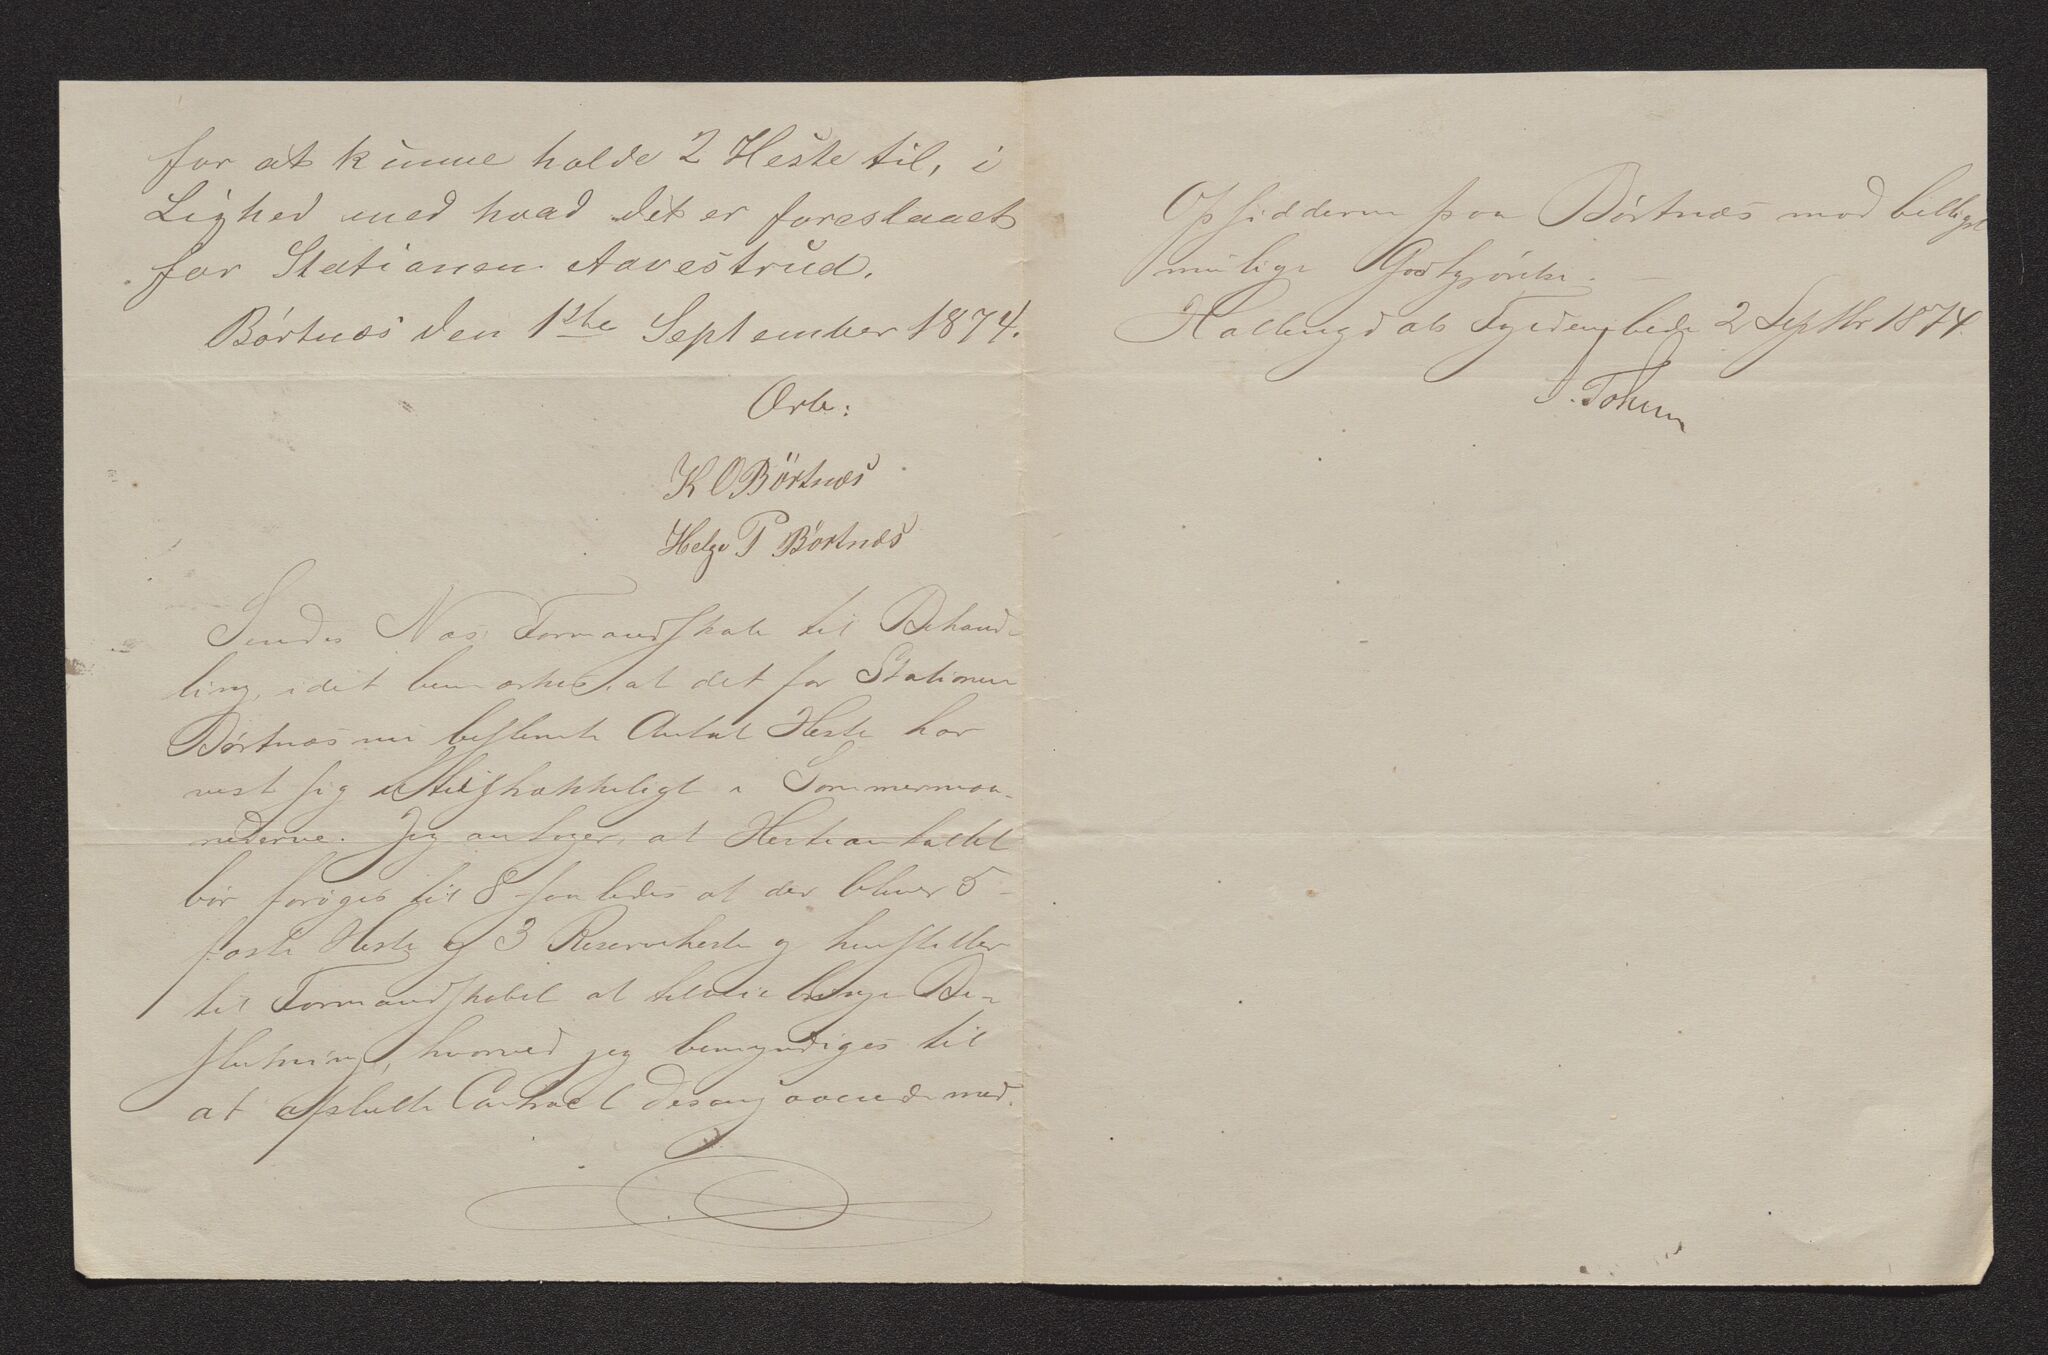 for at kunne holde 2 Heste til, i
Lighed med hvad det er foreslaaet
for Stationen Aavestrud.
Børtnæs den 1ste September 1874.
Ærb:
K O Börtnæs
Helge P Börtnæs
Sendes Næs Formandskab til Behand-
ling, idet bemærkes, at det for Stationen
Børtnæs nu bestemte Antal Heste har
vist sig utilstrækkeligt i Sommermaa-
nederne. Jeg antager, at Hesteantallet
bør forøges til 8 saaledes at der bliver 5
faste Heste og 3 Reserveheste og henstiller
til Formandskabet at tilveiebringe Be-
slutning, hvorved jeg bemyndiges til
at afslutte Contract desangaaende med
Opsidderne paa Børtnæs mod billigst
mulige Godtgjørelse.
Hallingdals Fogderi 2 Septbr 1874.